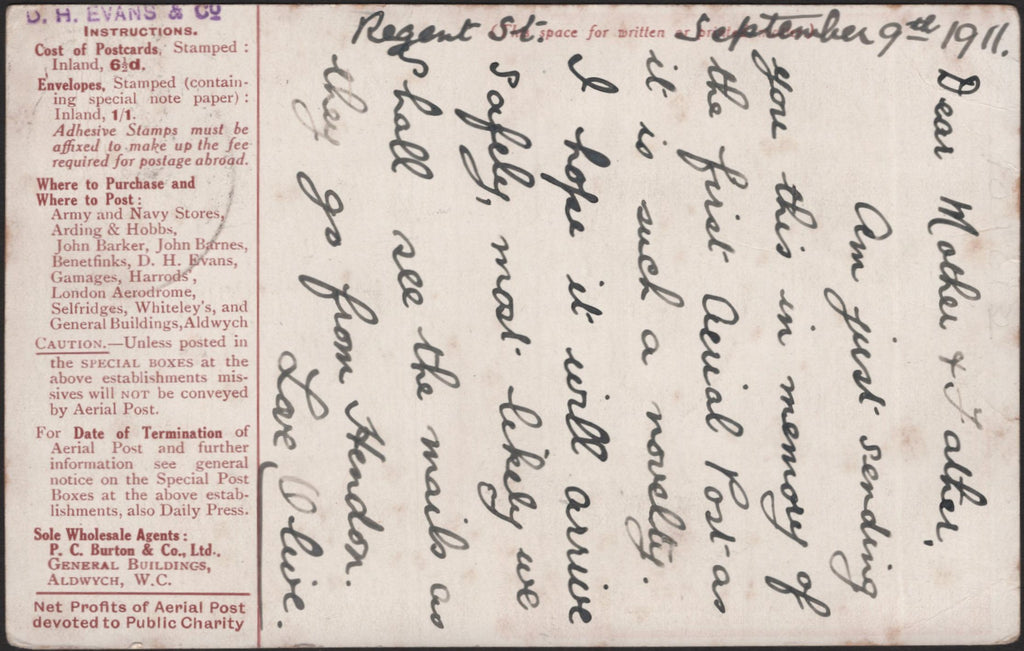 D. H. EVANS & Co
INSTRUCTIONS.
Cost of Postcards, Stamped :
Inland, 6½d.
Envelopes, Stamped (contain-
ing special note paper) :
Inland, 1/1.
Adhesive Stamps must be
affixed to make up the fee
required for postage abroad.
Where to Purchase and
Where to Post :
Army and Navy Stores,
Arding & Hobbs,
John Barker, John Barnes,
Benetfinks, D. H. Evans,
Gamages, Harrods',
London Aerodrome,
Selfridges, Whiteley's, and
General Buildings, Aldwych
CAUTION.—Unless posted in
the SPECIAL BOXES at the
above establishments mis-
sives will NOT be conveyed
by Aerial Post.
For Date of Termination of
Aerial Post and further
information see general
notice on the Special Post
Boxes at the above estab-
lishments, also Daily Press.
Sole Wholesale Agents :
P. C. Burton & Co., Ltd.,
GENERAL BUILDINGS,
ALDWYCH, W.C.
Net Profits of Aerial Post
devoted to Public Charity
This space for written or printed
Regent St. September 9th 1911.
Dear Mother & Father,
Am just sending
you this in memory of
the first Aerial Post as
it is such a novelty.
I hope it will arrive
safely, most likely we
shall see the mails as
they go from Hendon.
Love Olive.